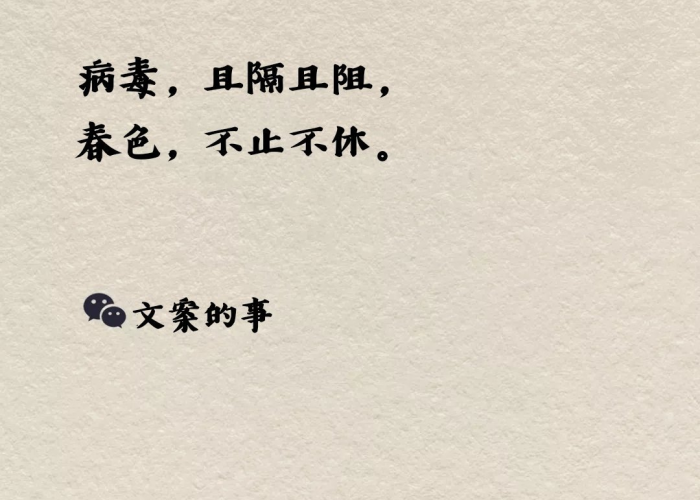 病毒，且隔且阻，
春色，不止不休。
文案的事